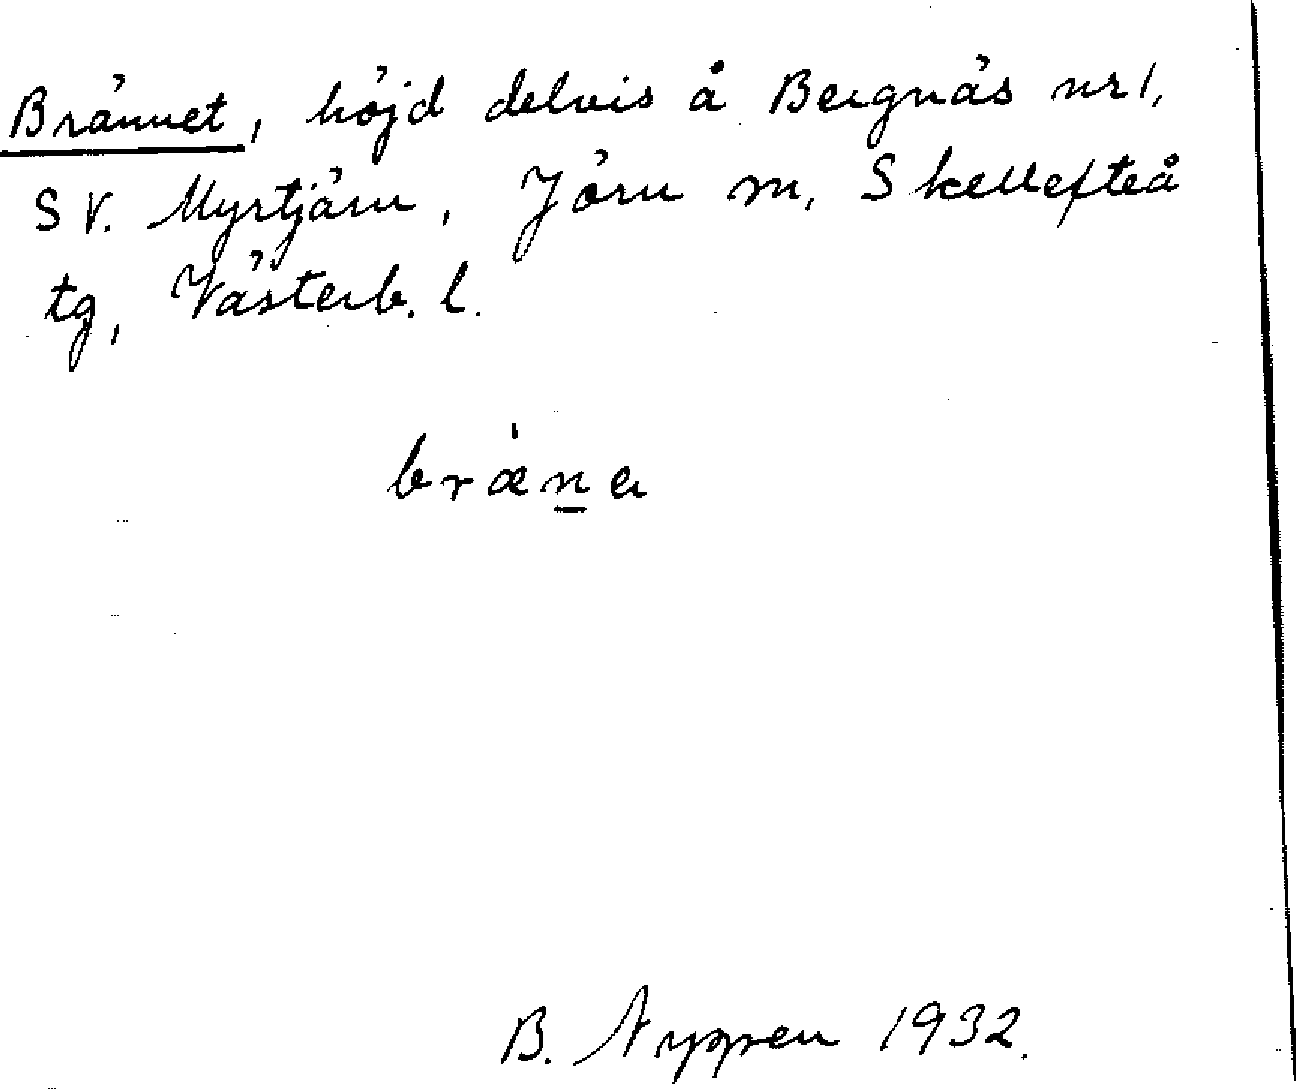 Brännet, höjd delvis å Bergnäs nr 1,
SV. Myrtjärn, Jörn sn, Skellefteå
tg, Västerb. l.
bræ̀n̲a
B. Nyppen 1932.